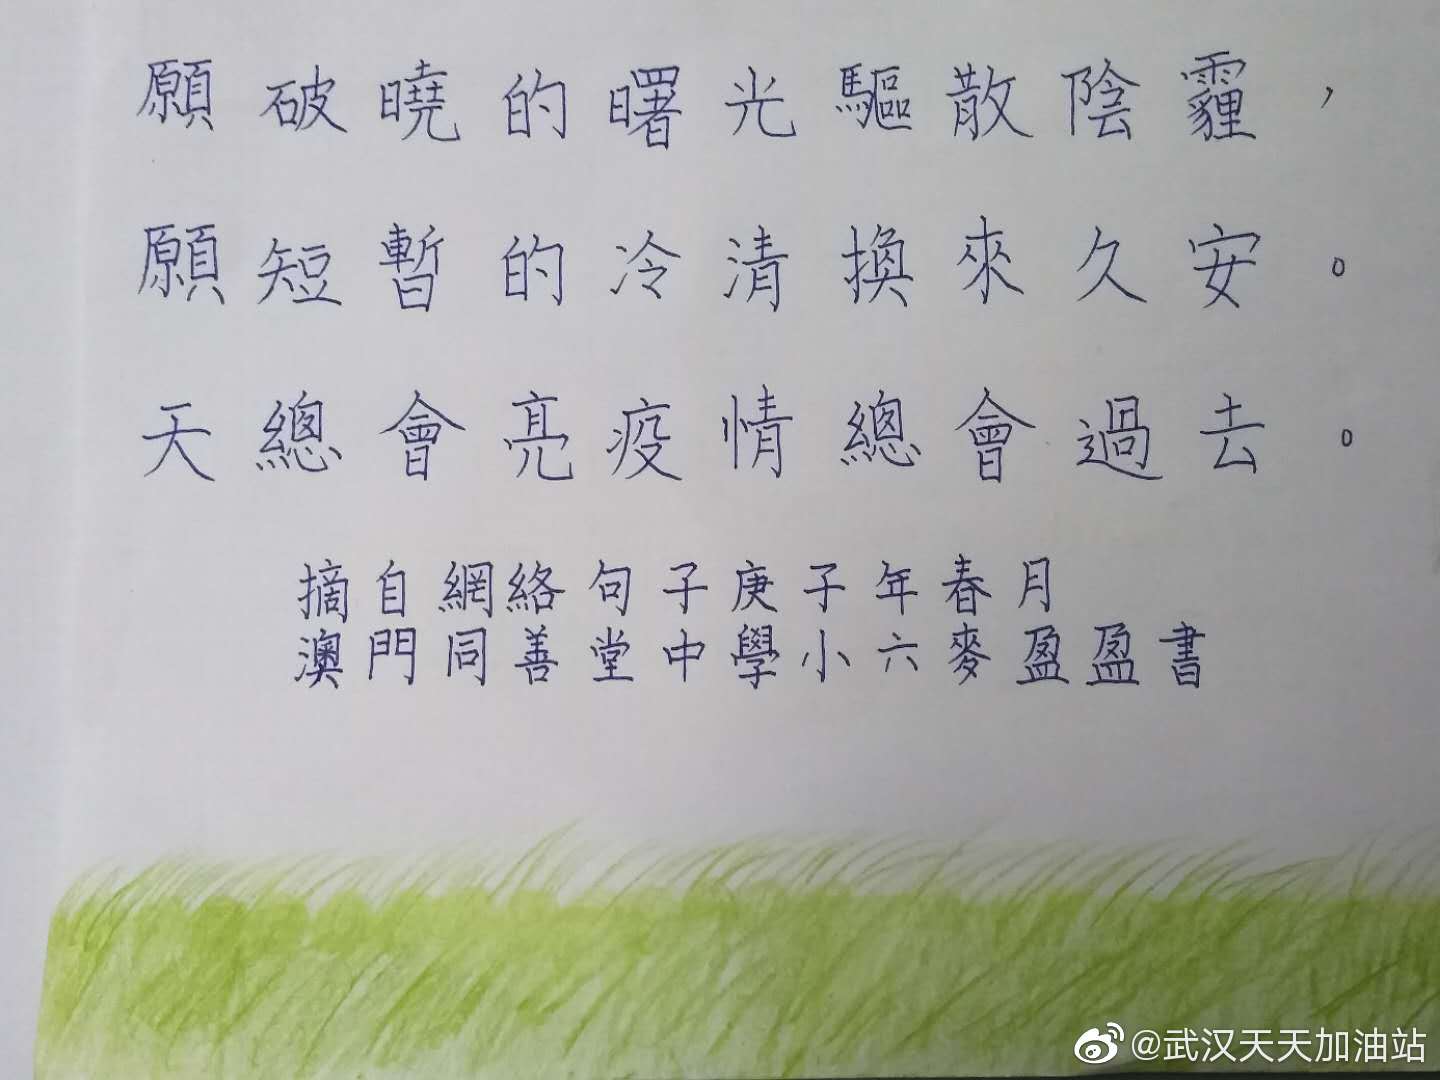 願破曉的曙光驅散陰霾，
願短暫的冷清換來久安。
天總會亮疫情總會過去。
摘自網絡句子庚子年春月
澳門同善堂中學小六麥盈盈書
@武汉天天加油站